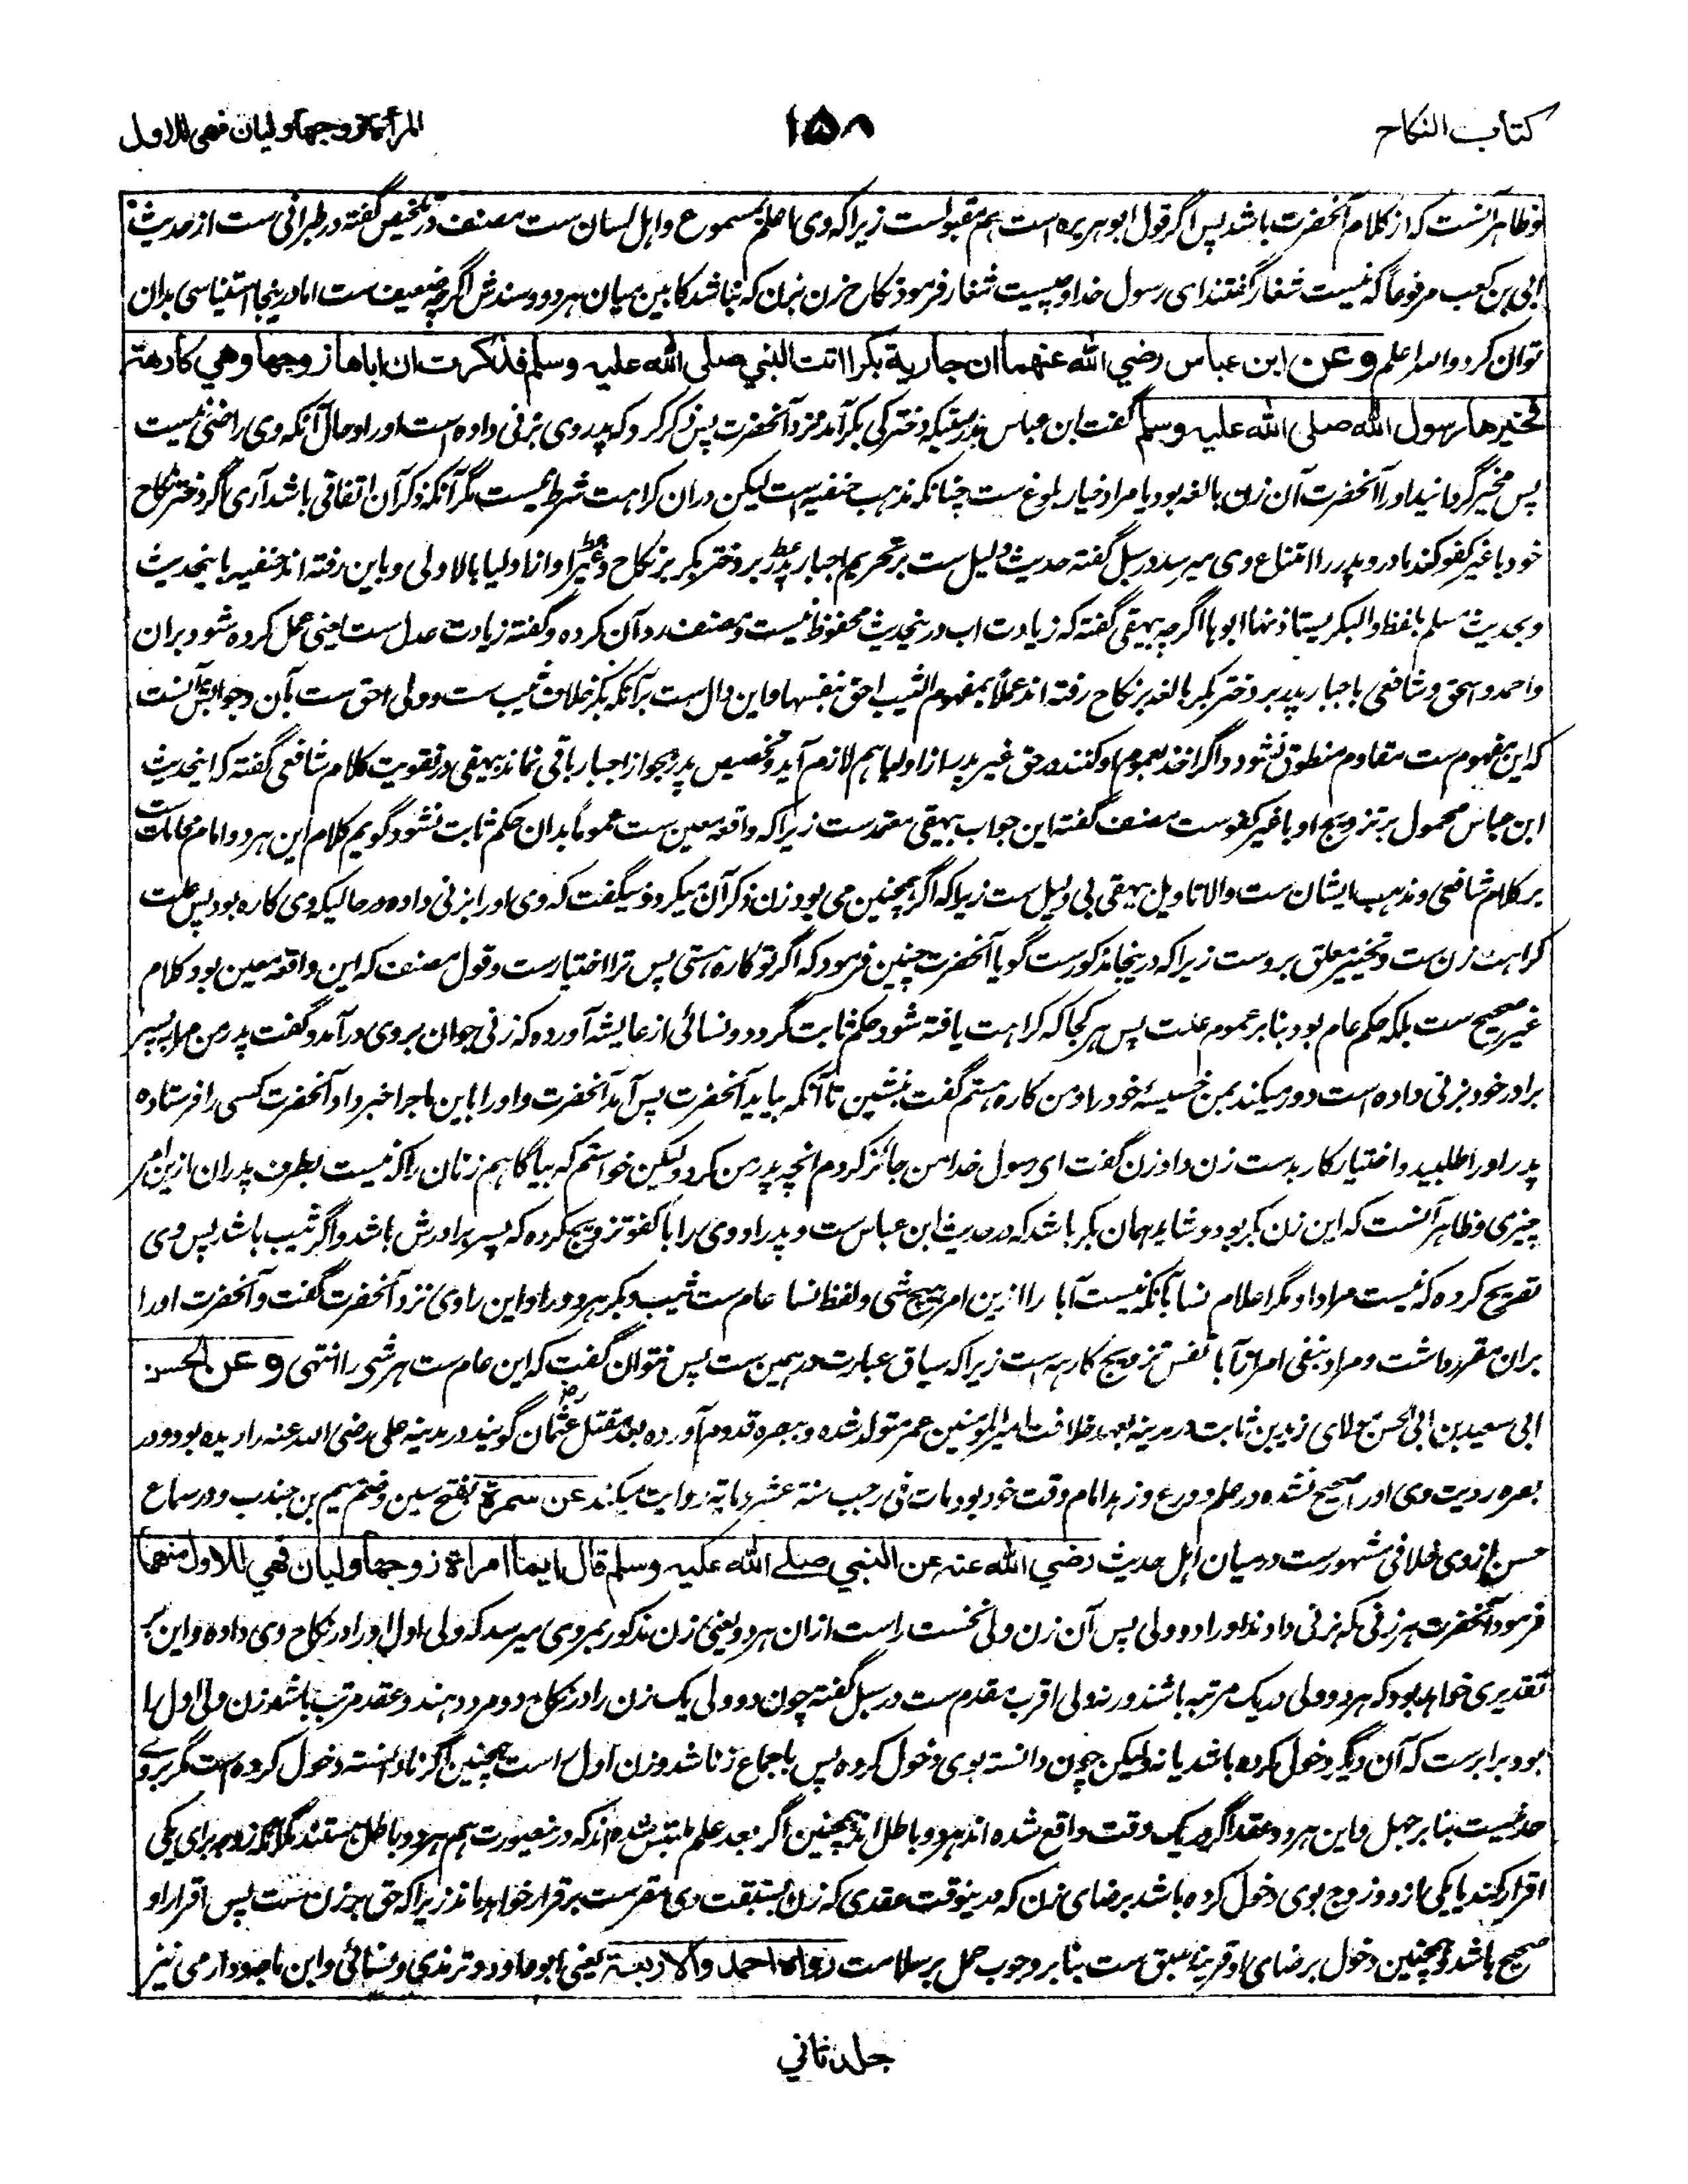 كتاب النكاح
١٥٨
المرأة زوجها وليان فهي للاول
وظاهر آنست که از کلام آنحضرت باشد پس اگر قول ابو هریره است هم مقبولست زیرا که وی اعلم بمسموع و اهل لسان ست مصنف در تلخیص گفته در طبرانی ست از حدیث
ابی بن کعب مرفوعا که نیست شغار گفتند ای رسول خدا و چیست شغار فرمود نکاح زن بزن که نباشد کابین میان هر دو و سندش اگر چه ضعیف ست اما درینجا استیناسی بدان
توان کرد والله اعلم وعن ابن عباس رضي الله عنهما ان جارية بكرا اتت النبي صلى الله عليه وسلم فذكرت ان اباها زوجها وهي كارهة
فخيرها رسول الله صلى الله عليه وسلم گفت ابن عباس بدرستیکه دخترکی بکر آمد نزد آنحضرت پس ذکر کرد که پدر وی بزنی داده است او را و حال آنکه وی راضی نیست
پس مخیر گردانید او را آنحضرت آن زن بالغه بود یا مراد خیار بلوغ ست چنانکه مذهب حنفیه است لیکن دران کراهت شرط نیست مگر آنکه ذکر آن اتفاقی باشد آری اگر دختر نکاح
خود با غیر کفو کند مادر و پدر را امتناع وی میرسد در سبل گفته حدیث دلیل ست بر تحریم اجبار پدر بر دختر بکر بر نکاح و غیر او از اولیا بالاولی و باین رفته اند حنفیه باینحدیث
و بحدیث مسلم بلفظ والبکر یستاذنها ابوها اگر چه بیهقی گفته که زیادت اب درینحدیث محفوظ نیست و مصنف رد آن کرده و گفته زیادت عدل ست یعنی عمل کرده شود بران
و احمد و اسحق و شافعی باجبار پدر بر دختر بکر بالغه بر نکاح رفته اند عملا بمفهوم الثیب احق بنفسها و این دال ست بر آنکه بکر خلاف ثیب ست و ولی احق ست بآن و جوابش آنست
که این مفهوم ست مقاوم منطوق نشود و اگر اخذ بعموم او کنند در حق غیر پدر از اولیا هم لازم آید و تخصیص پدر بجواز اجبار باقی نماند بیهقی در تقویت کلام شافعی گفته که اینحدیث
ابن عباس محمول بر تزویج او با غیر کفوست مصنف گفته این جواب بیهقی معتمدست زیرا که واقعه معین ست عموما بدان حکم ثابت نشود گویم کلام این هر دو امام محامات ست
بر کلام شافعی و مذهب ایشان ست والا تاویل بیهقی بی دلیل ست زیرا که اگر همچنین می بود زن ذکر آن میکرد و میگفت که وی او را بزنی داده در حالیکه وی کاره بود پس علت
کراهت زن ست و تخییر معلق بروست زیرا که درینجا مذکورست گویا آنحضرت چنین فرمود که اگر تو کاره هستی پس ترا اختیارست و قول مصنف که این واقعه معین بود کلام
غیر صحیح ست بلکه حکم عام بود بنا بر عموم علت پس هر کجا که کراهت یافته شود حکم ثابت گردد و نسائی از عایشه آورده که زنی جوان بروی درآمد و گفت پدر من مرا به پسر
برادر خود بزنی داده است دور میکند بمن خسیسهٔ خود را و من کاره هستم گفت بنشین تا آنکه بیاید آنحضرت پس آمد آنحضرت و او را باین ماجرا خبر داد آنحضرت کسی را فرستاده
پدر او را طلبید و اختیار کار بدست زن داد زن گفت ای رسول خدا من جائز کردم انچه پدر من کرد ولیکن خواستم که بیاگاهم زنان را که نیست بطرف پدران ازین امر
چیزی و ظاهر آنست که این زن بکر بود و شاید همان بکر باشد که در حدیث ابن عباس ست و پدر او وی را با کفو تزویج کرده که پسر برادرش باشد و اگر ثیب باشد پس وی
تصریح کرده که نیست مراد او مگر اعلام نسا بآنکه نیست آبا را ازین امر هیچ شی و لفظ نسا عام ست ثیب و بکر هر دو را و این را وی نزد آنحضرت گفت و آنحضرت او را
بران مقرر داشت و مراد بنفی امر از آبا نفس تزویج کارهه است زیرا که سیاق عبارت در همین ست پس نتوان گفت که این عام ست هر شی را انتهی وعن الحسن
ابی سعید بن ابی الحسن مولای زید بن ثابت در مدینه بعهد خلافت امیر المومنین عمر متولد شده و ببصره قدوم آورده بعد مقتل عثمان رض گویند در مدینه علی رضی الله عنه را دیده بود و در
بصره رویت وی او را صحیح نشده در علم و ورع و زهد امام وقت خود بود مات فی رجب سنة عشر و مایة روایت میکند عن سمرة بفتح سین و ضم میم بن جندب و در سماع
حسن از وی خلافی مشهورست در میان اهل حدیث رضي الله عنه عن النبي صلى الله عليه وسلم قال ايما امراة زوجها وليان فهي للاول منهما
فرمود آنحضرت هر زنی که بزنی دادند او را دو ولی پس آن زن ولی نخست راست ازان هر دو یعنی زن مذکور بمردی میرسد که ولی اول او را در نکاح وی داده و این بر
تقدیری خواهد بود که هر دو ولی در یک مرتبه باشند ورنه ولی اقرب مقدم ست در سبل گفته چون دو ولی یک زن را در نکاح دو مرد دهند و عقد مرتب باشد زن ولی اول را
بود برابرست که آن دیگر دخول کرده باشد یا نه ولیکن چون دانسته بوی دخول کرده پس باجماع زنا شد و زن اول راست همچنین اگر نادانسته دخول کرده است مگر بروے
حد نیست بنا بر جهل و این هر دو عقد اگر در یک وقت واقع شده اند هر دو باطل اند همچنین اگر بعد علم ملتبس شده اند که درینصورت هم هر دو باطل هستند مگر آنکه زوجه برای یکی
اقرار کند یا یکی از دو زوج بوی دخول کرده باشد برضای زن که درینوقت عقدی که زن بسبقت وی مقرست برقرار خواهد ماند زیرا که حق بر زن ست پس اقرار او
صحیح باشد و همچنین دخول برضای او قرینهٔ سبق ست بنا بر وجوب حمل بر سلامت رواه احمد والاربعة یعنی ابو داود و ترمذی و نسائی و ابن ماجه و دارمی نیز
جلد ثاني